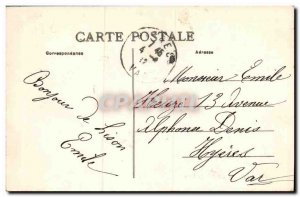 CARTE POSTALE
Correspondance
Adresse
Bonjour de Lison
Emile
Monsieur Emile
13 Avenue
Alphonse Denis
Hyères
Var